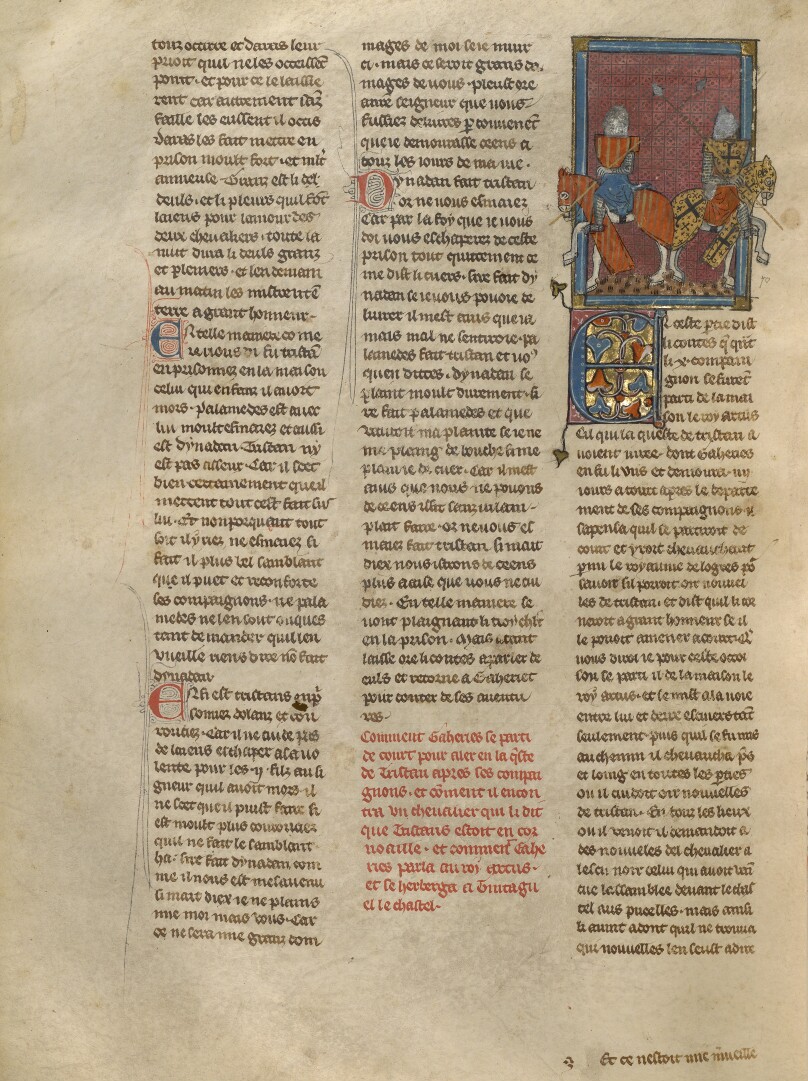 touz outtre et daras leur
prioit quil ne les oceissẽt
point · et pour ce le laissie
rent car autrement sãz
faille les eussent il ocis
daras les fait mettre en
prison moult fort · et mlt
anuieuse · Granz est li del
deuls · et li pleurs quil font
laiens pour lamour des
deux cheualiers · toute la
nuit dura li deuls granz
et pleniers · et lendemain
au matin les mistrent ẽ
terre a grant honneur ·
En telle maniere co me
ie uous di fu tristã
en prisonnez en la maison
celui qui enfanz il auoit
mors · Palamedes est auec
lui moult esmaiez et aussi
est dynadan · Tristan ny
est pas asseur · Car il scet
bien certainement que il
mettent tout cest fait sus
lui · Et nonporquant tout
soit il yriez ne esmaiez si
fait il plus bel samblant
que il puet et reconforte
ses compaignons · ne pala
medes ne len sout onques
tant demander quil en
vueille riens dire nõ fait
dynadan
Ensi est tristans enp̃
sonnez dolanz et cou
rouciez · Car il ne cuide pas
de laiens eschaper a sa uo
lente pour les · ij · filz au si
gneur quil auoit mors il
ne scet que il puist faire si
est moult plus courouciez
quil ne fait le samblant ·
ha · sire fait dynadan com
me il nous est mesauenu
si maist diex ie ne plains
mie moi mais vous · Car
ce ne sera mie granz dom
mages de moi se ie muir
ci · mais ce seroit grans do
mages de uous · pleust ore
nostre seigneur que uous
fussiez deliures p̱ conuenẽt
que ie demourasse ceens a
touz les iours de ma uie ·
Dynadan fait tristan
or ne uous esmaiez
Car par la foy que ie uous
doi uous eschaperez de ceste
prison tout quittement ce
me dist li cuers · sire fait dy
nadan se ie uous pouoie de
liurer il mest auis que ia
mais mal ne sentiroie · pa
lamedes fait tristan et uoꝰ
quen dittes · dynadan se
plaint moult durement · si
re fait palamedes et que
vaudroit ma plainte se ie ne
me plaing de bouche si me
plaing ie de cuer · Car il mest
auis que nous ne pouons
de ceens issir sanz uilain ·
plait faire · or ne uous es
maiez fait tristan si maist
diex nous istrons de ceens
plus aaise que uous ne cui
diez · En telle maniere se
uont plaignant li troy chlr̃
en la prison · Mais atant
laisse ore li contes a parler de
euls et retorne a Gaheriet
pour conter de ses auentu
res ·
Comment Gaheries se parti
de court pour aler en la q̃ste
de Tristan apres ses compai
gnons · et cõment il encon
tra vn cheualier qui li dit
que Tristans estoit en cor
noaille · et comment Gahe
ries parla au roy artus ·
et se herberga a Tintagu
el le chastel ·
En ceste ptie dist
li contes q̃ q̃nt
li · x · compain
gnon se furẽt
parti de la mai
son le roy artus
Cil qui la queste de tristan a
uoient iuree · dont Gaheries
en fu li vns et demoura · iiij
iours a court apres le departe
ment de ses compaignons il
sapensa quil se partiroit de
court et yroit cheuauchant
p̱mi le royaume de logres po͛
sauoir sil porroit oir nouuel
les de tristan · et dist quil li tor
neroit a grant honneur se il
le pouoit amener a court · Q̃
uous diroi ie pour ceste occoi
son se parti il de la maison le
roy artus · et se mist a la uoie
entre lui et deux escuiers tãt
seulement · puis quil se fu mis
au chemin il cheuaucha p̃s
et loing en toutes les p̱ties
ou il cuidoit oir nouuelles
de tristan · En touz les lieux
ou il venoit il demandoit a
des nouueles del cheualier a
lescu noir celui qui auoit uaĩ
cue lassamblee deuant le chas
tel aus pucelles · mais ainsi
li auint adont quil ne trouua
qui nouuelles len seust a dire
Et ce nestoit mie m̃ueille